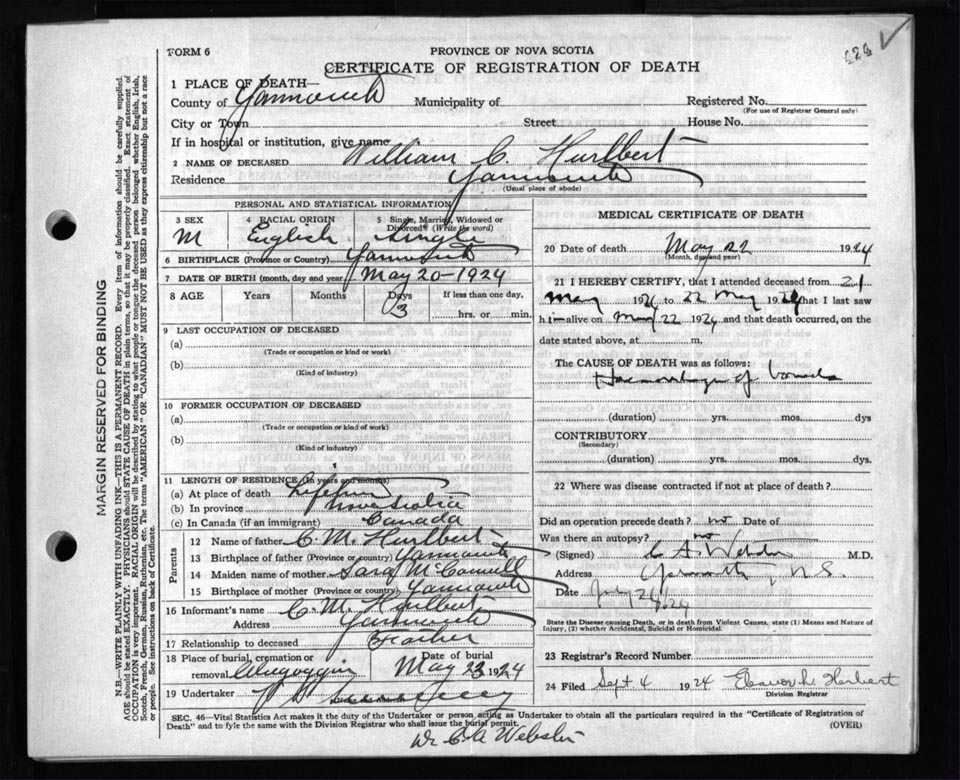 FORM 6
PROVINCE OF NOVA SCOTIA
CERTIFICATE OF REGISTRATION OF DEATH
1 PLACE OF DEATH
County of Yarmouth Municipality of Registered No.
(For use of Registrar General only)
City or Town Street House No.
If in hospital or institution, give name
2 NAME OF DECEASED William C. Hurlbert
Residence Yarmouth
(Usual place of abode)
PERSONAL AND STATISTICAL INFORMATION
3 SEX 4 RACIAL ORIGIN 5 Single, Married, Widowed or Divorced (Write the word)
M English Single
6 BIRTHPLACE (Province or Country) Yarmouth
7 DATE OF BIRTH (month, day and year) May 20-1924
8 AGE Years Months Days If less than one day,
3 hrs. or min.
9 LAST OCCUPATION OF DECEASED
(a)
(Trade or occupation or kind or work)
(b)
(Kind of industry)
10 FORMER OCCUPATION OF DECEASED
(a)
(Trade or occupation or kind of work)
(b)
(Kind of industry)
11 LENGTH OF RESIDENCE (in years and months)
(a) At place of death
(b) In province Nova Scotia
(c) In Canada (if an immigrant) Canada
Parents
12 Name of father C. M. Hurlbert
13 Birthplace of father (Province or country) Yarmouth
14 Maiden name of mother
15 Birthplace of mother (Province or country) Yarmouth
16 Informant's name C. M. Hurlbert
Address Yarmouth
17 Relationship to deceased Father
18 Place of burial, cremation or removal Date of burial
May 23 1924
19 Undertaker
MEDICAL CERTIFICATE OF DEATH
20 Date of death May 22 1924
(Month, day and year)
21 I HEREBY CERTIFY, that I attended deceased from 21
May 1924 to 22 May 1924 that I last saw
him alive on May 22 1924 and that death occurred, on the
date stated above, at m.
The CAUSE OF DEATH was as follows:
Haemorrhage of bowels
(duration) yrs. mos. dys
CONTRIBUTORY
(Secondary)
(duration) yrs. mos. dys.
22 Where was disease contracted if not at place of death?
Did an operation precede death? not Date of
Was there an autopsy? not
(Signed) C A Webster M.D.
Address Yarmouth, N.S.
Date
State the Disease causing Death, or in death from Violent Causes, state (1) Means and Nature of
Injury, (2) whether Accidental, Suicidal or Homicidal.
23 Registrar's Record Number
24 Filed Sept 4 1924
Division Registrar
SEC. 46—Vital Statistics Act makes it the duty of the Undertaker or person acting as Undertaker to obtain all the particulars required in the "Certificate of Registration of
Death" and to fyle the same with the Division Registrar who shall issue the burial permit. (OVER)
Dr C A Webster
MARGIN RESERVED FOR BINDING
N.B.—WRITE PLAINLY WITH UNFADING INK—THIS IS A PERMANENT RECORD. Every item of information should be carefully supplied.
AGE should be stated EXACTLY. PHYSICIANS should STATE CAUSE OF DEATH in plain terms, so that it may be properly classified. Exact statement of
OCCUPATION is very important. RACIAL ORIGIN will be described by stating to what people or tongue the deceased person belonged whether English, Irish,
Scotch, French, German, Russian, Ruthenian, etc. The terms "AMERICAN" OR "CANADIAN" MUST NOT BE USED as they express citizenship but not a race
or people. See instructions on back of Certificate.